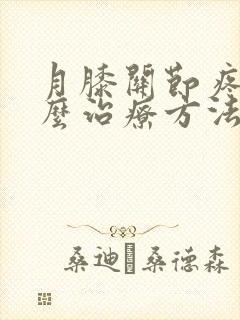 月膝關節疼
麼治療方法
桑迪 桑德森